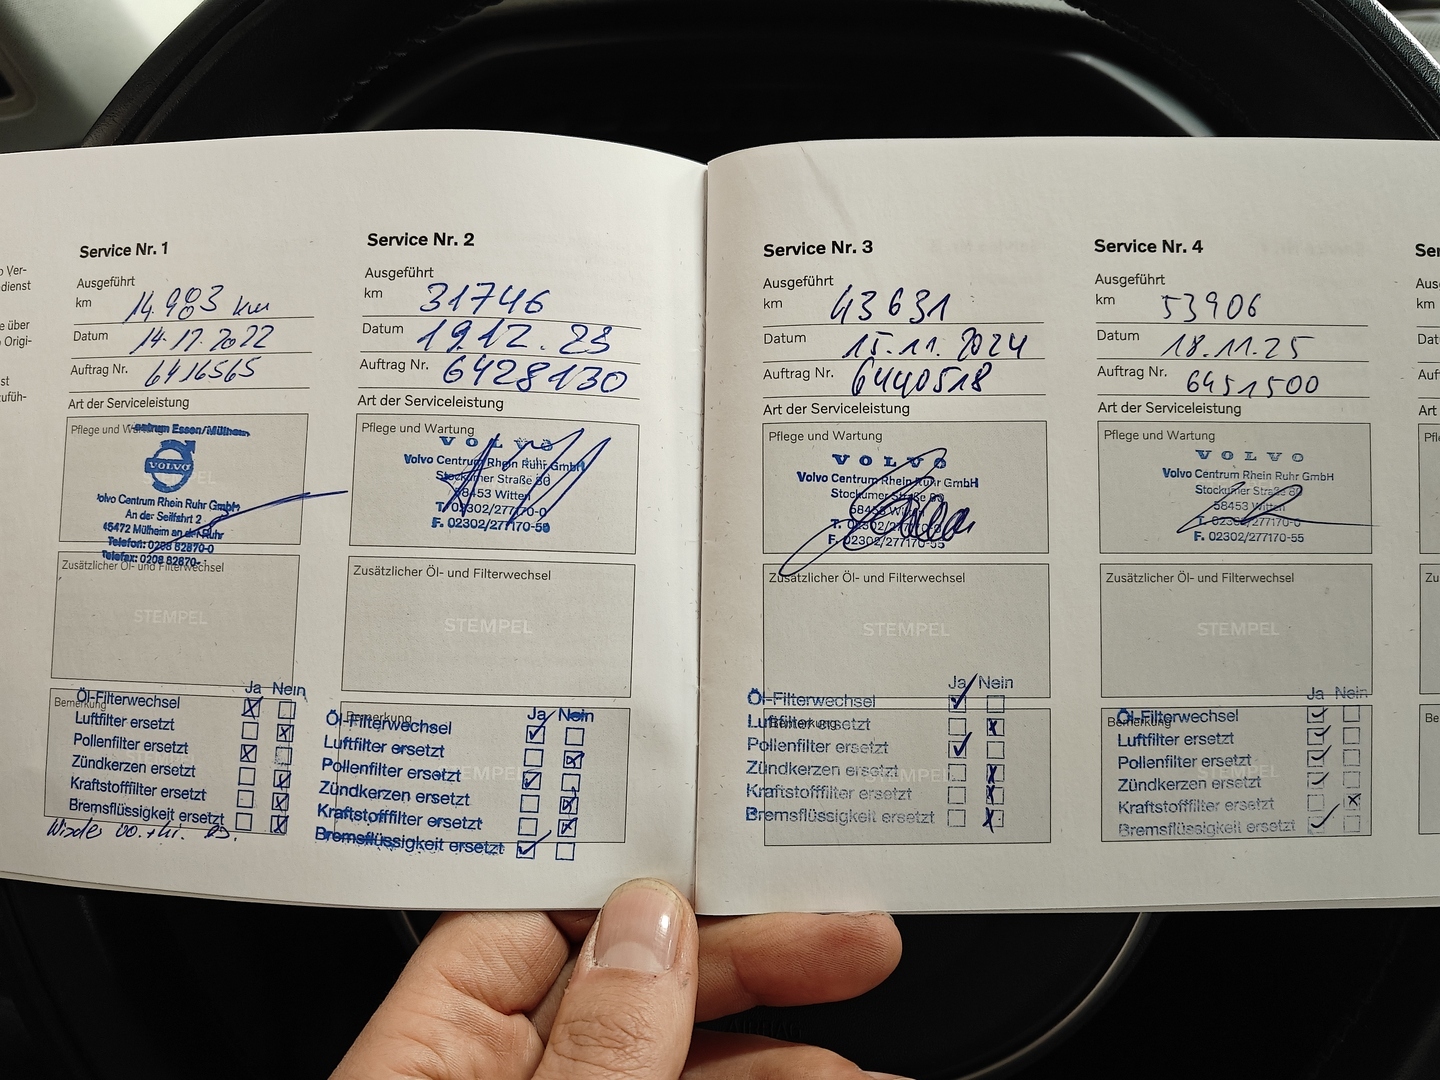 o Ver-
dienst
e über
Origi-
st
zufüh-
Service Nr. 1
Ausgeführt
km 14.983 km
Datum 14.12.2022
Auftrag Nr. 6416565
Art der Serviceleistung
Pflege und
entrum Essen/Mülheim
VOLVO
Volvo Centrum Rhein Ruhr GmbH
An der Seilfahrt 2
45472 Mülheim an der Ruhr
Telefon: 0208 82870-0
Telefax: 0208 82870-
Zusätzlicher Öl- und Filterwechsel
STEMPEL
Bemerkung
Ja Nein
Öl-Filterwechsel
Luftfilter ersetzt
Pollenfilter ersetzt
Zündkerzen ersetzt
Kraftstofffilter ersetzt
Bremsflüssigkeit ersetzt
Service Nr. 2
Ausgeführt
km 31746
Datum 19.12.23
Auftrag Nr. 6428130
Art der Serviceleistung
Pflege und Wartung
VOLVO
Volvo Centrum Rhein Ruhr GmbH
Stockumer Straße 80
58453 Witten
T. 02302/277170-0
F. 02302/277170-55
Zusätzlicher Öl- und Filterwechsel
STEMPEL
Bemerkung
Ja Nein
Öl-Filterwechsel
Luftfilter ersetzt
Pollenfilter ersetzt
Zündkerzen ersetzt
Kraftstofffilter ersetzt
Bremsflüssigkeit ersetzt
Service Nr. 3
Ausgeführt
km 43631
Datum 15.11.2024
Auftrag Nr. 6440518
Art der Serviceleistung
Pflege und Wartung
VOLVO
Volvo Centrum Rhein Ruhr GmbH
Stockumer Straße 80
58453 Witten
T. 02302/277170-0
F. 02302/277170-55
Zusätzlicher Öl- und Filterwechsel
STEMPEL
Ja Nein
Öl-Filterwechsel
Luftfilter ersetzt
Pollenfilter ersetzt
Zündkerzen ersetzt
Kraftstofffilter ersetzt
Bremsflüssigkeit ersetzt
Service Nr. 4
Ausgeführt
km 53906
Datum 18.11.25
Auftrag Nr. 6451500
Art der Serviceleistung
Pflege und Wartung
VOLVO
Volvo Centrum Rhein Ruhr GmbH
Stockumer Straße 80
58453 Witten
T. 02302/277170-0
F. 02302/277170-55
Zusätzlicher Öl- und Filterwechsel
STEMPEL
Bemerkung
Ja Nein
Öl-Filterwechsel
Luftfilter ersetzt
Pollenfilter ersetzt
Zündkerzen ersetzt
Kraftstofffilter ersetzt
Bremsflüssigkeit ersetzt
Ser
Ausg
km
Dat
Auf
Art
Pfle
Zu